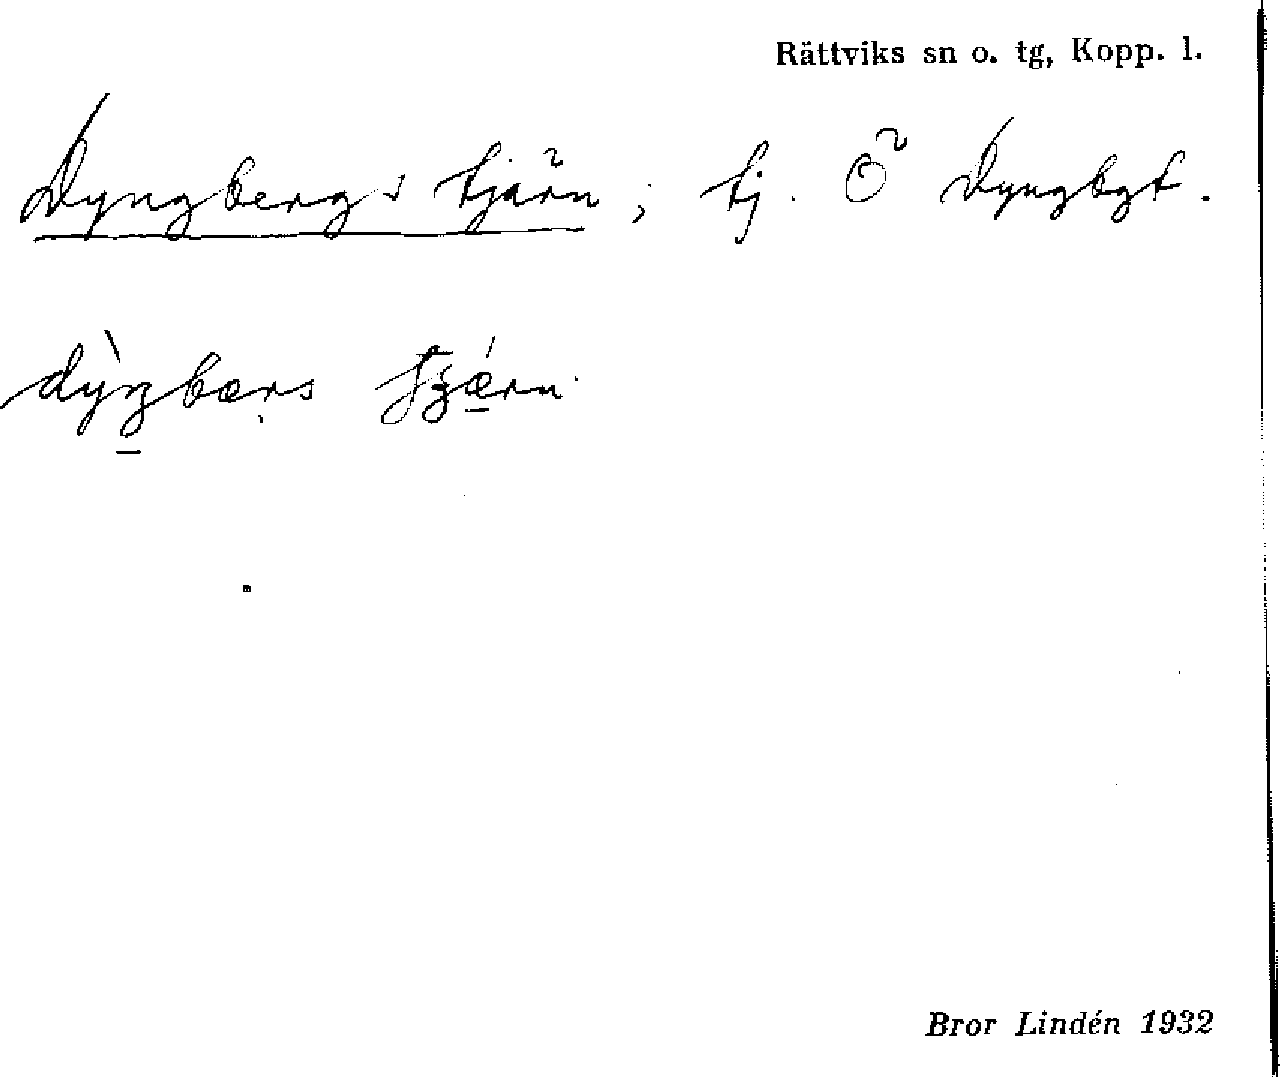 Rättviks sn o. tg, Kopp. l.
Dyngbergs tjärn; tj. Ö Dyngbgt.
Bror Lindén 1932